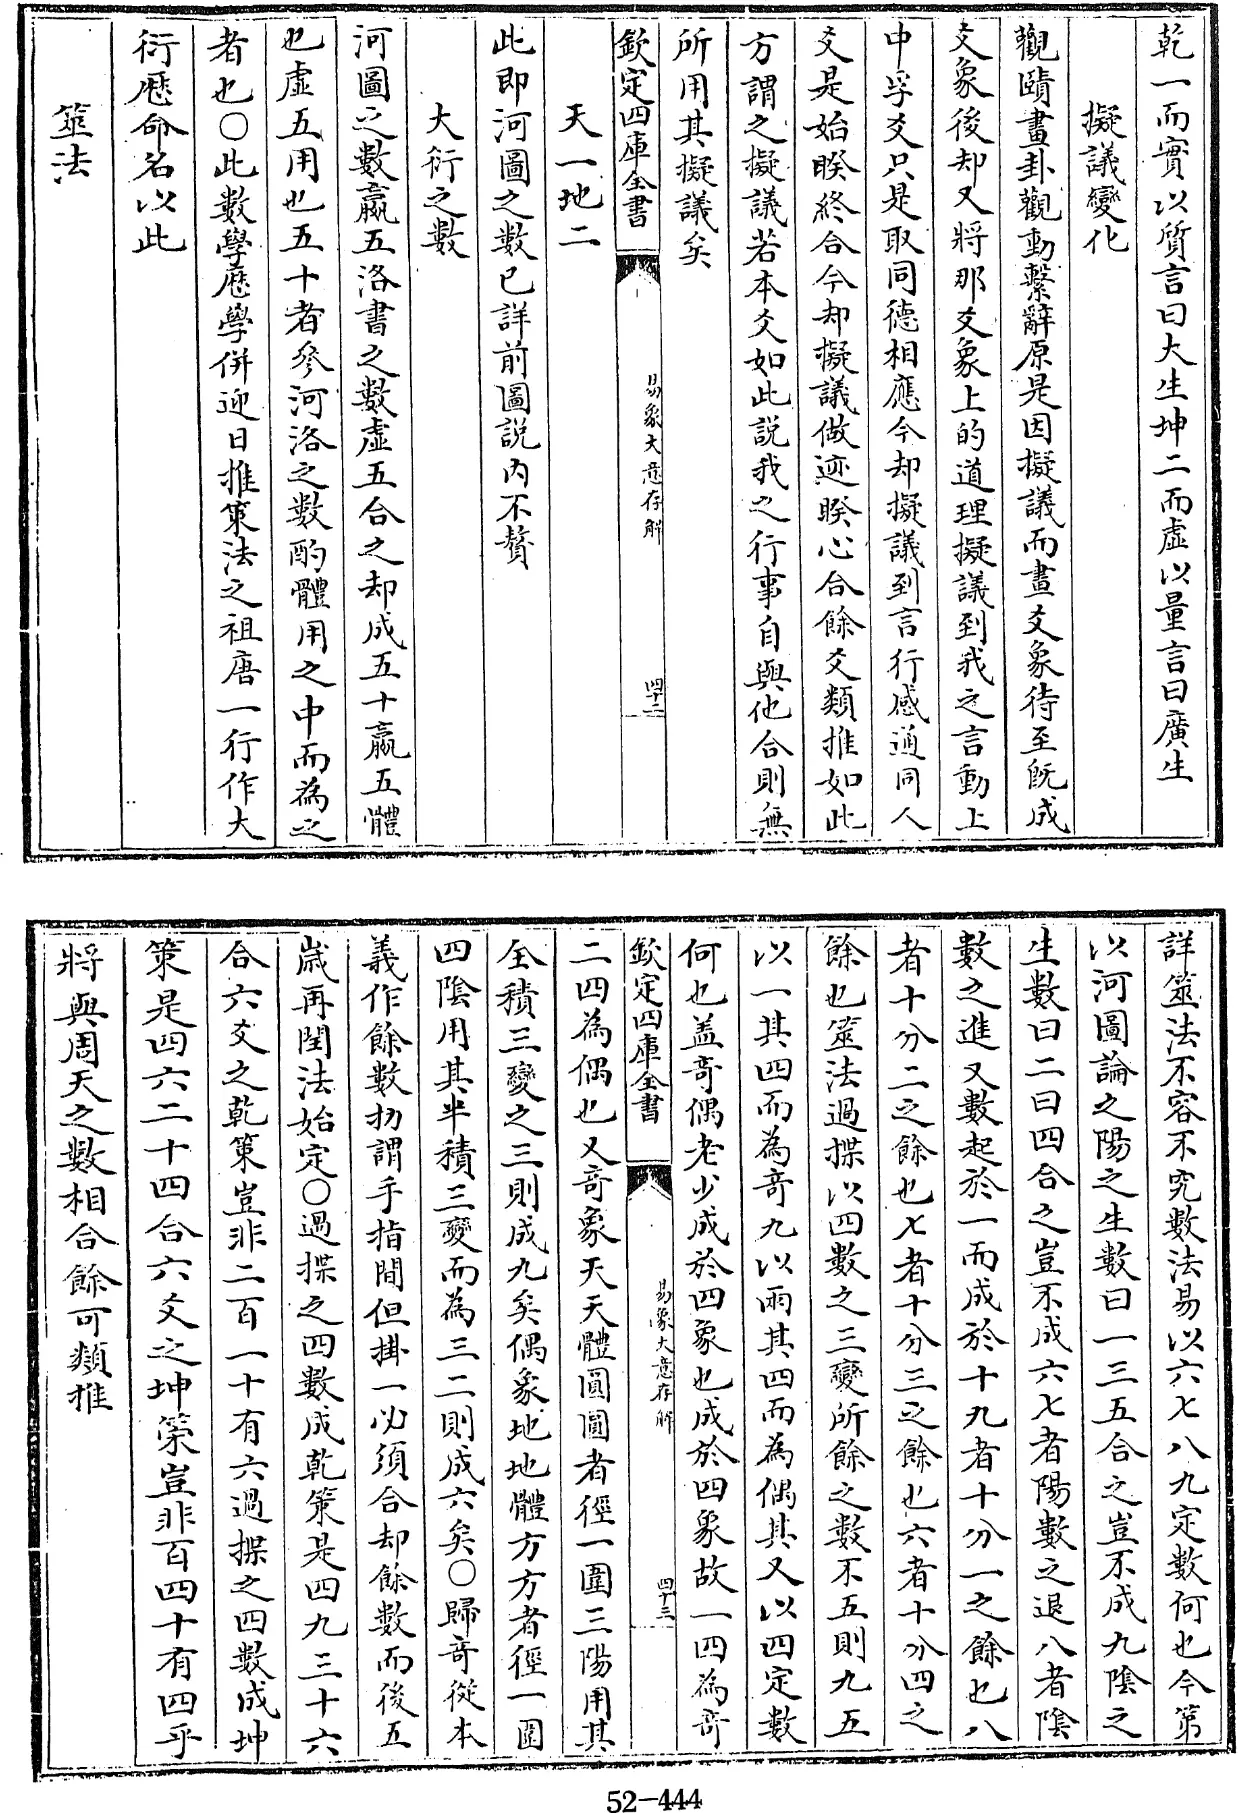 乾一而實以質言曰大生坤二而虛以量言曰廣生
擬議變化
觀賾畫卦觀動繫辭原是因擬議而畫爻象待至旣成
爻象後却又將那爻象上的道理擬議到我之言動上
中孚爻只是取同德相應今却擬議到言行感通同人
爻是始睽終合今却擬議做迹睽心合餘爻類推如此
方謂之擬議若本爻如此説我之行事自與他合則無
所用其擬議矣
欽定四庫全書
易象大意存解
四十二
天一地二
此即河圖之數已詳前圖説內不贅
大衍之數
河圖之數贏五洛書之數虛五合之却成五十贏五體
也虛五用也五十者參河洛之數酌體用之中而為之
者也○此數學歷學併迎日推策法之祖唐一行作大
衍歷命名以此
筮法
詳筮法不容不究數法易以六七八九定數何也今第
以河圖論之陽之生數曰一三五合之豈不成九陰之
生數曰二曰四合之豈不成六七者陽數之退八者陰
數之進又數起於一而成於十九者十分一之餘也八
者十分二之餘也七者十分三之餘也六者十分四之
餘也筮法過揲以四數之三變所餘之數不五則九五
以一其四而為奇九以兩其四而為偶其又以四定數
何也盖奇偶老少成於四象也成於四象故一四為奇
欽定四庫全書
易象大意存解
四十三
二四為偶也又奇象天天體圓圓者徑一圍三陽用其
全積三變之三則成九矣偶象地地體方方者徑一圍
四陰用其半積三變而為三二則成六矣○歸奇從本
義作餘數扐謂手指間但掛一必須合却餘數而後五
歲再閏法始定○過揲之四數成乾策是四九三十六
合六爻之乾策豈非二百一十有六過揲之四數成坤
策是四六二十四合六爻之坤策豈非百四十有四乎
將與周天之數相合餘可類推
52-444